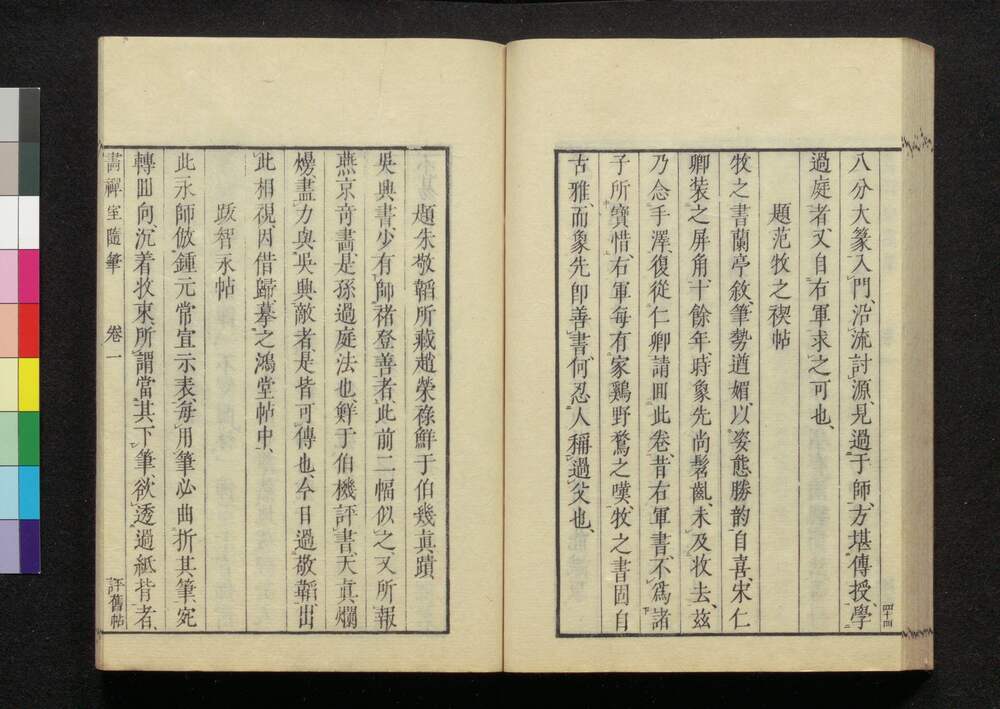 八分大篆入門、沿流討源、見過于師、方堪傳授、學
過庭者、又自右軍求之可也、
題范牧之禊帖
牧之書蘭亭敘、筆勢遒媚、以姿態勝韵自喜、宋仁
卿裝之屏角十餘年、時象先尚髫齓、未及收去、茲
乃念手澤、復從仁卿請回此卷、昔右軍書、不爲諸
子所寶惜、右軍每有家鷄野鶩之嘆、牧之書固自
古雅、而象先即善書、何忍人稱過父也、
四十四
題朱敬韜所藏趙榮祿鮮于伯幾真蹟
吳興書、少有師褚登善者、此前二幅似之、又所報
燕京奇畵、是孫過庭法也、鮮于伯機評書、天真爛
熳、盡力與吳興敵者、是皆可傳也、今日過敬韜、出
此相視、因借歸摹之鴻堂帖中、
跋智永帖
此永師倣鍾元常宣示表、每用筆必曲折其筆、宛
轉回向、沉着收束、所謂當其下筆、欲透過紙背者、
畵禪室隨筆 卷一 評舊帖